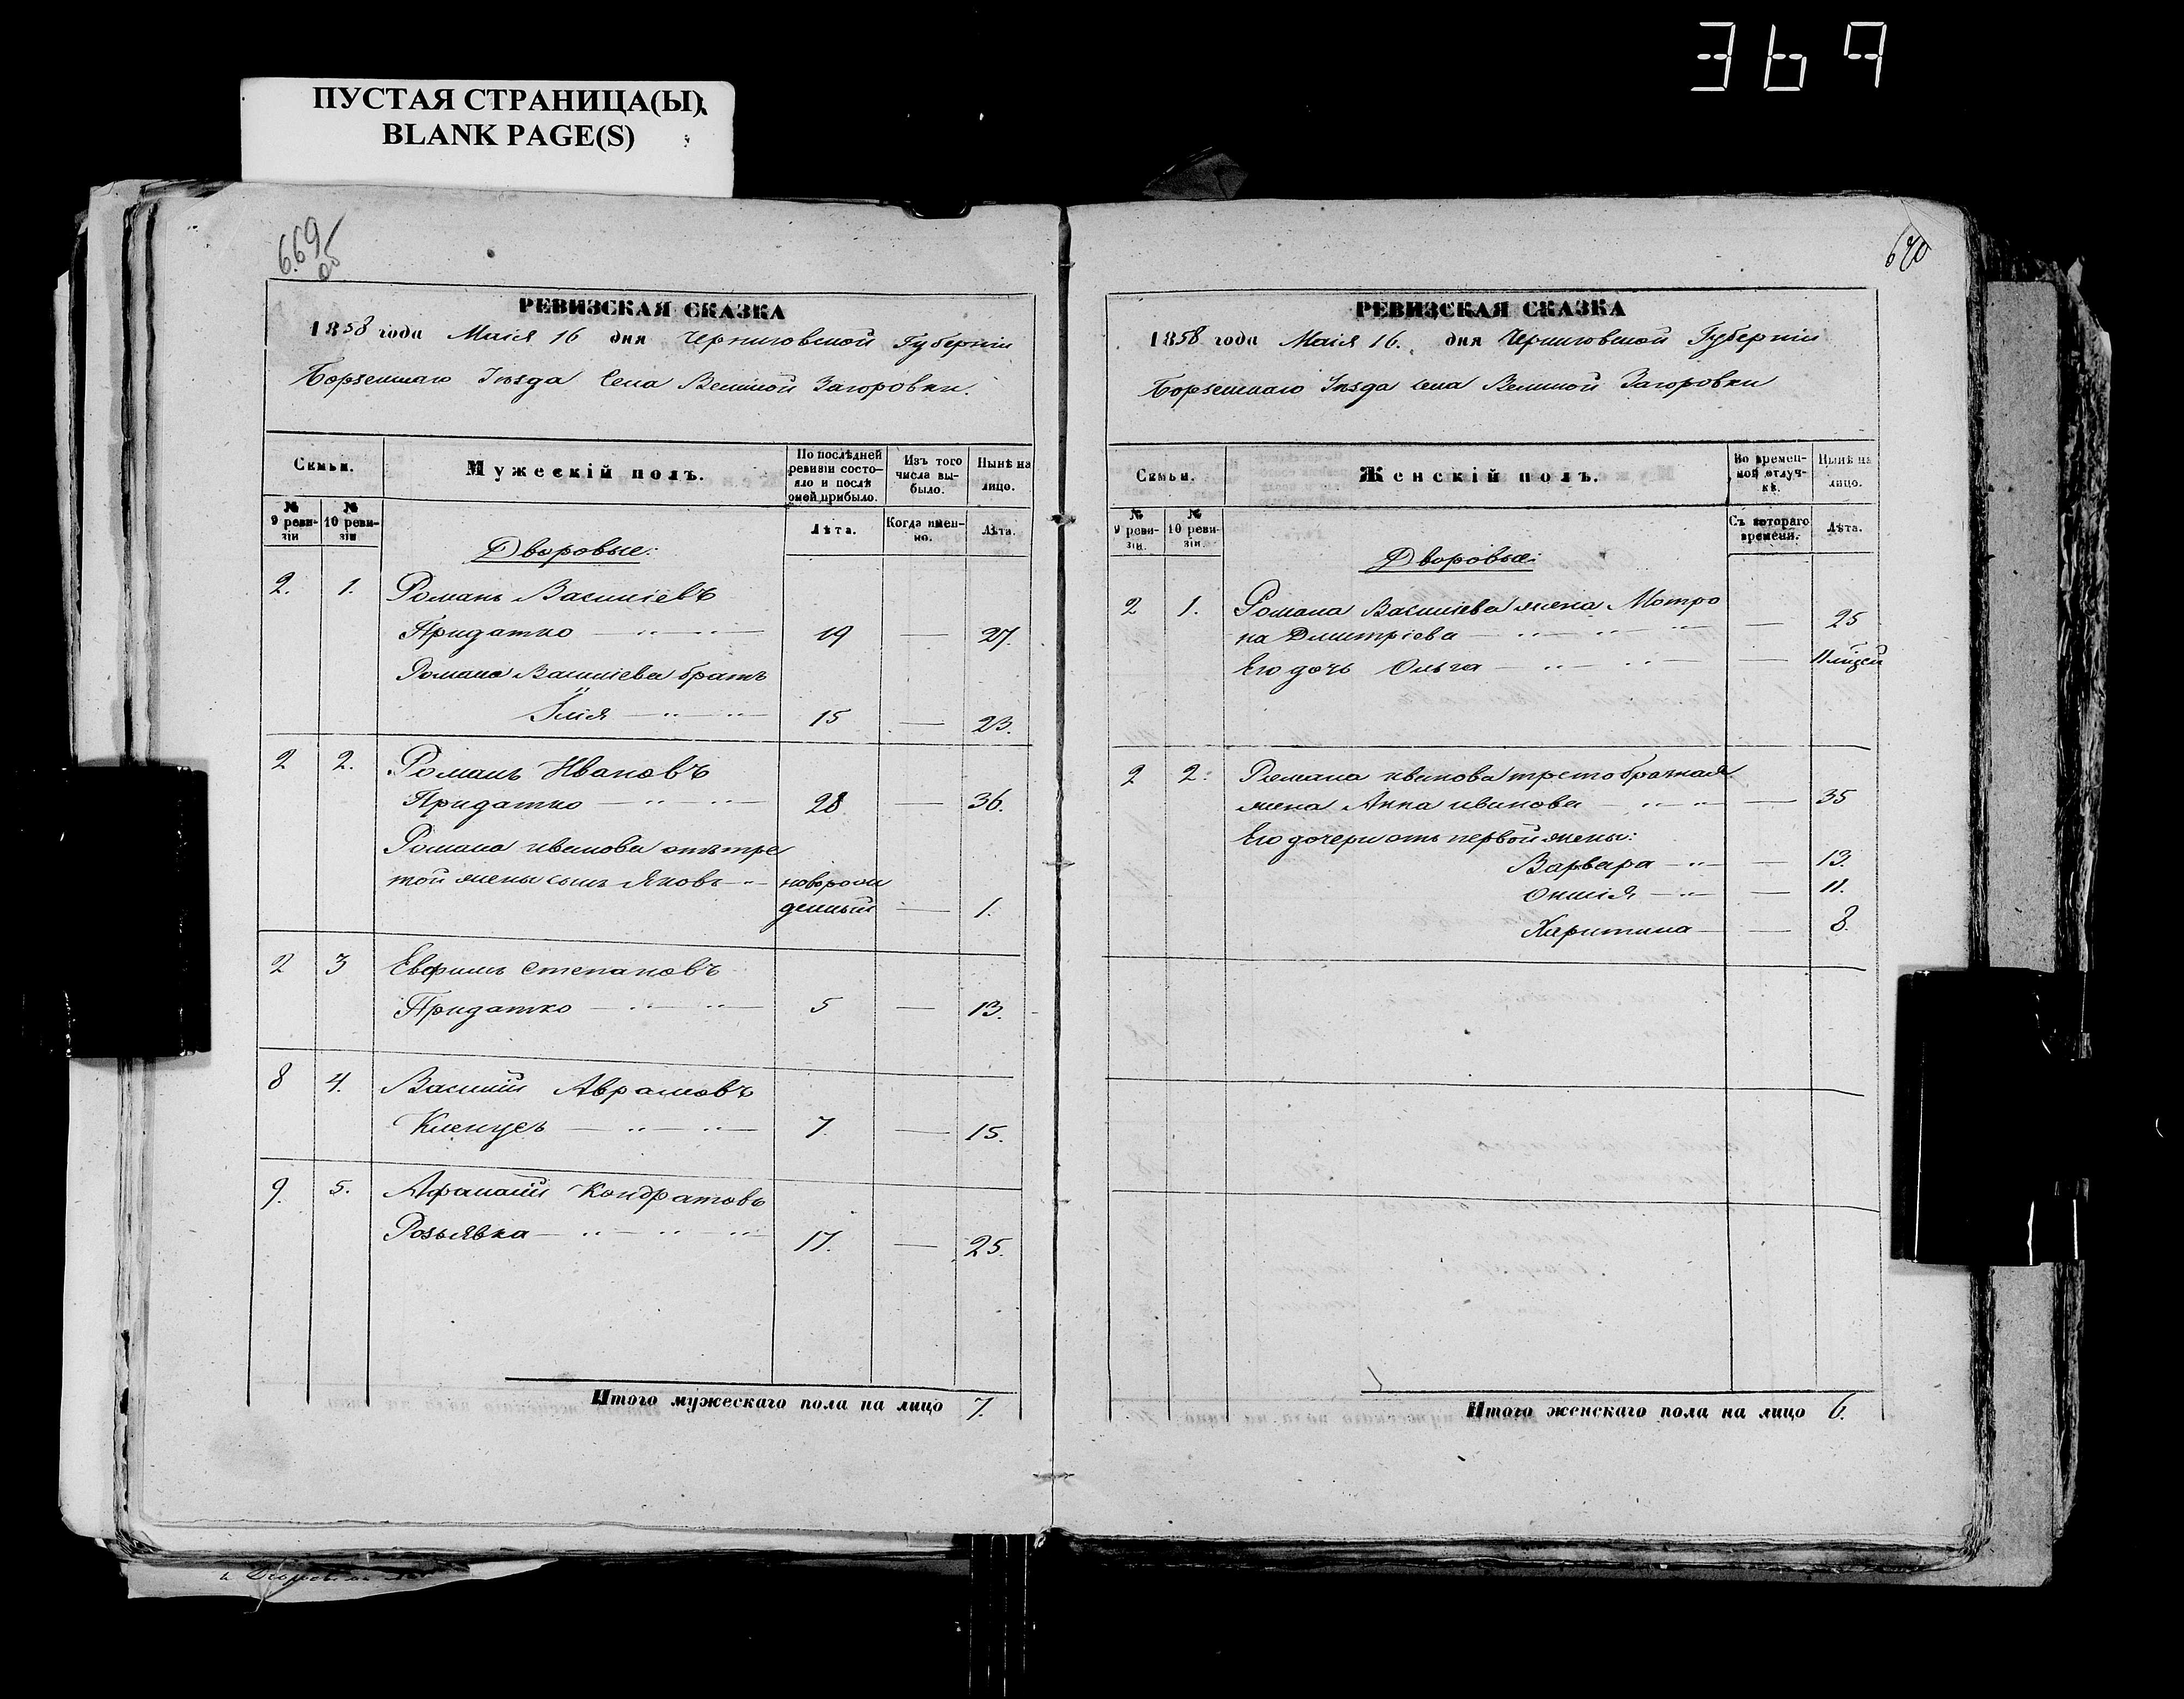 369
ПУСТАЯ СТРАНИЦА(Ы).
BLANK PAGE(S)
669
об
РЕВИЗСКАЯ СКАЗКА
1858 года Маія 16 дня Черниговской Губерніи
Борзенскаго Уѣзда Села Великой Загоровки.
Семьи.
Мужескій полъ.
По послѣдней ревизіи состояло и послѣ оной прибыло.
Изъ того числа выбыло.
Нынѣ на лицо.
№ 9 ревизіи
№ 10 ревизіи
Лѣта.
Когда именно.
Лѣта.
Дворовые:
2. 1. Романъ Василіевъ
Придатко — 19 — 27.
Романа Василіева братъ
Илія — 15 — 23.
2 2. Романъ Ивановъ
Придатко — 28 — 36.
Романа иванова отъ тре
той жены сынъ Яковъ — новорож
денный — 1.
2 3 Евфимъ Степановъ
Придатко — 5 — 13.
8 4. Василій Аврамовъ
Кленусъ — 7. — 15.
9. 5. Афанасій Кондратовъ
Розъявка — 17. — 25.
Итого мужескаго пола на лицо 7.
670
РЕВИЗСКАЯ СКАЗКА
1858 года Маія 16. дня Черниговской Губерніи
Борзенскаго Уѣзда села Великой Загоровки
Семьи.
Женскій полъ.
Во временной отлучкѣ.
Нынѣ на лицо.
№ 9 ревизіи.
№ 10 ревизіи.
Съ котораго времени.
Лѣта.
Дворовые:
2 1. Романа Василіева жена Мотро
на Дмитріева — — 25
Его дочь Ольга — — 11 мѣсец
2 2. Романа иванова третобрачная
жена Анна иванова — — 35
Его дочери отъ первой жены:
Варвара — — 13.
Оксія — — 11.
Харитина — — 8.
Итого женскаго пола на лицо 6.